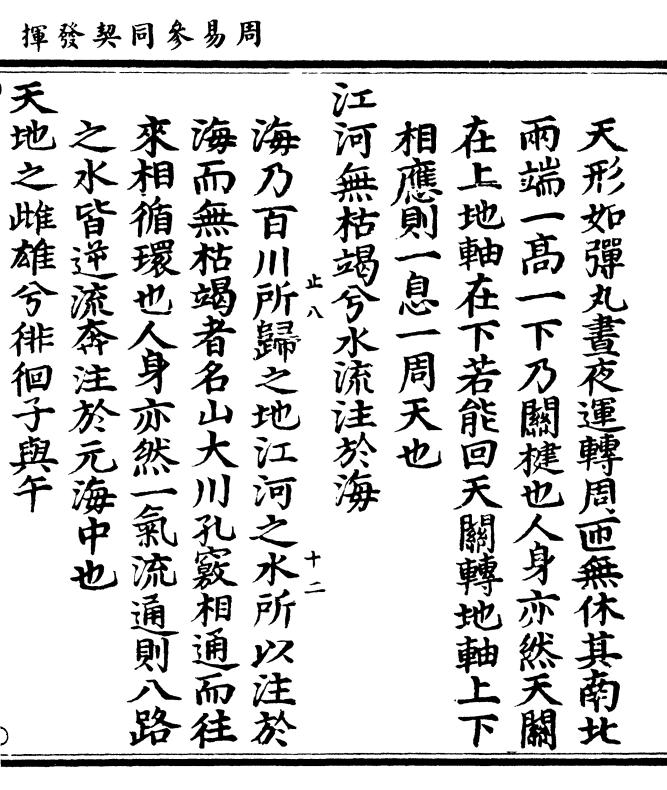 周易參同契發揮
天形如彈丸晝夜運轉周匝無休其南北
兩端一高一下乃關楗也人身亦然天關
在上地軸在下若能回天關轉地軸上下
相應則一息一周天也
江河無枯竭兮水流注於海
海乃百川所歸之地江河之水所以注於
止八
十二
海而無枯竭者名山大川孔竅相通而往
來相循環也人身亦然一氣流通則八路
之水皆逆流奔注於元海中也
天地之雌雄兮徘徊子與午